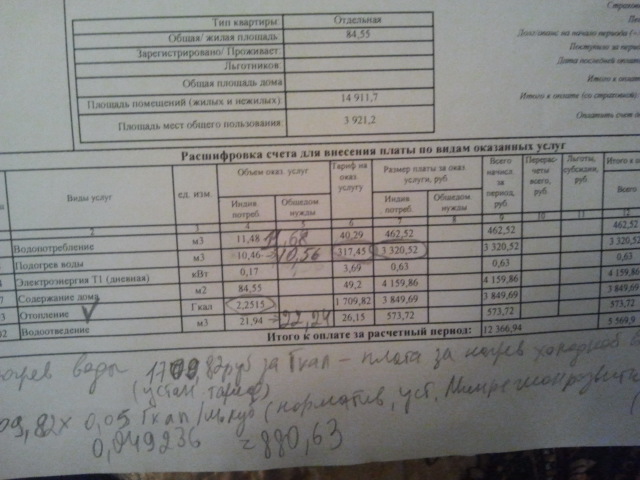 Страхово
Тип квартиры: Отдельная
Общая/ жилая площадь: 84,55
Зарегистрировано/ Проживает:
Льготников:
Общая площадь дома
Площадь помещений (жилых и нежилых): 14 911,7
Площадь мест общего пользования: 3 921,2
Задолженность на начало периода
Поступило за период
Дата последней оплаты
Итого к оплате
Итого к оплате (со страховкой)
Расшифровка счета для внесения платы по видам оказанных услуг
Виды услуг ед. изм. Объем оказ. услуг Тариф на оказ. услугу Размер платы за оказ. услуги, руб Всего начисл. за период, руб Перерасчеты всего, руб. Льготы, субсидии, руб Итого к о
Индив потреб. Общедом нужды Индив потреб. Общедом. нужды Всего
2 3 4 6 7 8 9 10 11 12
Водопотребление м3 11,48 11,68 40,29 462,52 462,52 462,52
Подогрев воды м3 10,46 10,56 317,45 3 320,52 3 320,52 3 320,52
Электроэнергия Т1 (дневная) кВт 0,17 3,69 0,63 0,63 0,63
Содержание дома м2 84,55 49,2 4 159,86 4 159,86 4 159,86
Отопление Гкал 2,2515 1 709,82 3 849,69 3 849,69 3 849,69
Водоотведение м3 21,94 22,24 26,15 573,72 573,72 573,72
Итого к оплате за расчетный период: 12 366,94
воды 1709,82руб за Гкал – плата за нагрев холодной
(устан. тариф)
09,82х 0,05 Гкал (норматив, уст.
0,049236 =880,63